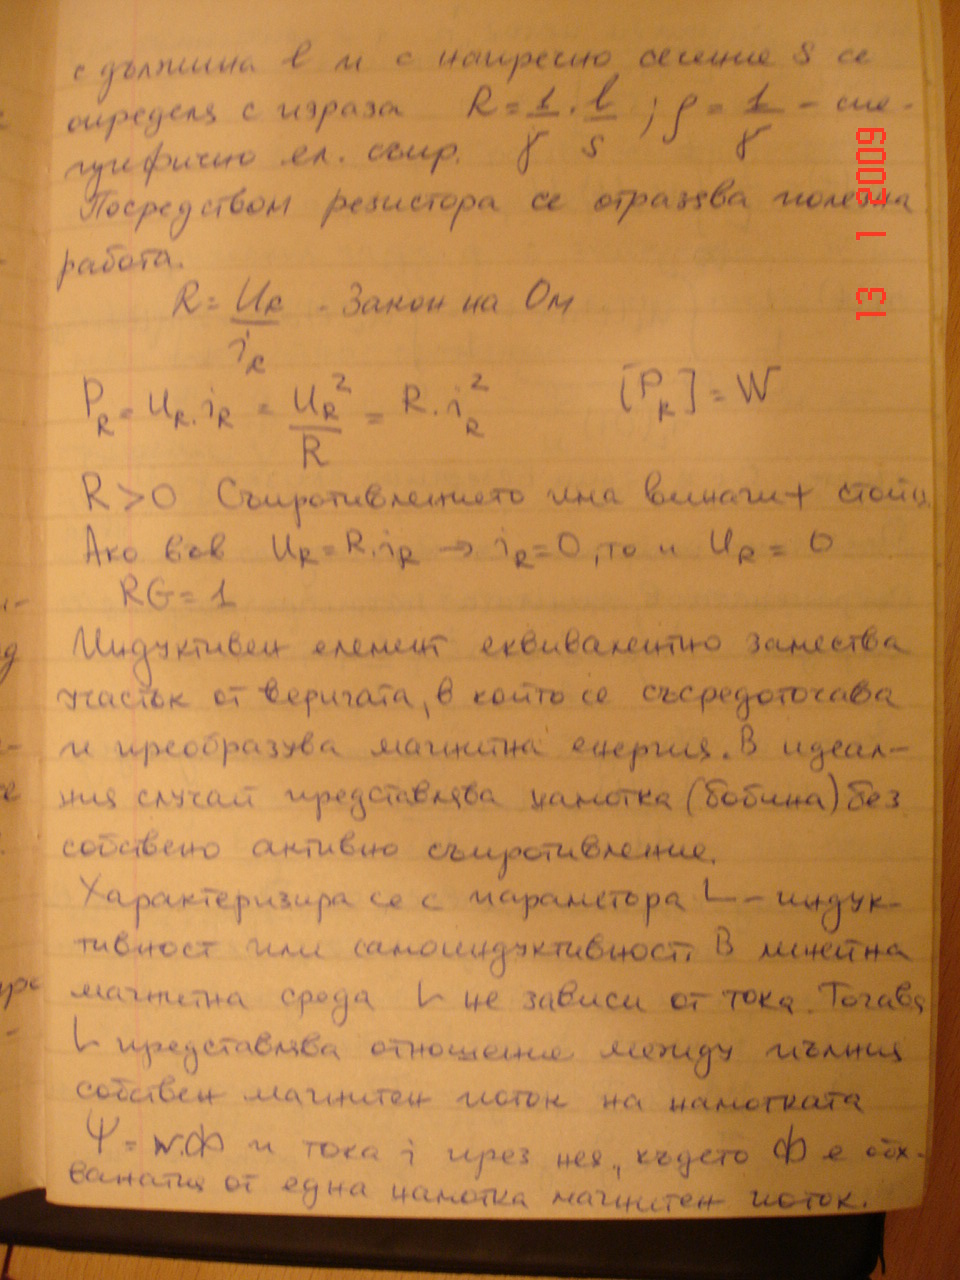 с дължина l м с напречно сечение S се
определя с израза R = 1/γ . l/S ; ρ = 1/γ - спе-
цифично ел. съпр.
Посредством резистора се отразява полезна
работа.
R = UR/iR - Закон на Ом
PR = UR.iR = UR²/R = R.iR² [PR] = W
R>0 Съпротивлението има винаги + стойн.
Ако във UR = R.iR → iR = 0, то и UR = 0
RG = 1
Индуктивен елемент еквивалентно замества
участък от веригата, в който се съсредоточава
и преобразува магнитна енергия. В идеал-
ния случай представлява намотка (бобина) без
собствено активно съпротивление.
Характеризира се с параметъра L - индук-
тивност или самоиндуктивност. В линейна
магнитна среда L не зависи от тока. Тогава
L представлява отношение между пълния
собствен магнитен поток на намотката
Ψ = w.Ф и тока i през нея, където Ф е обх-
ванатия от една намотка магнитен поток.
13 1 2009